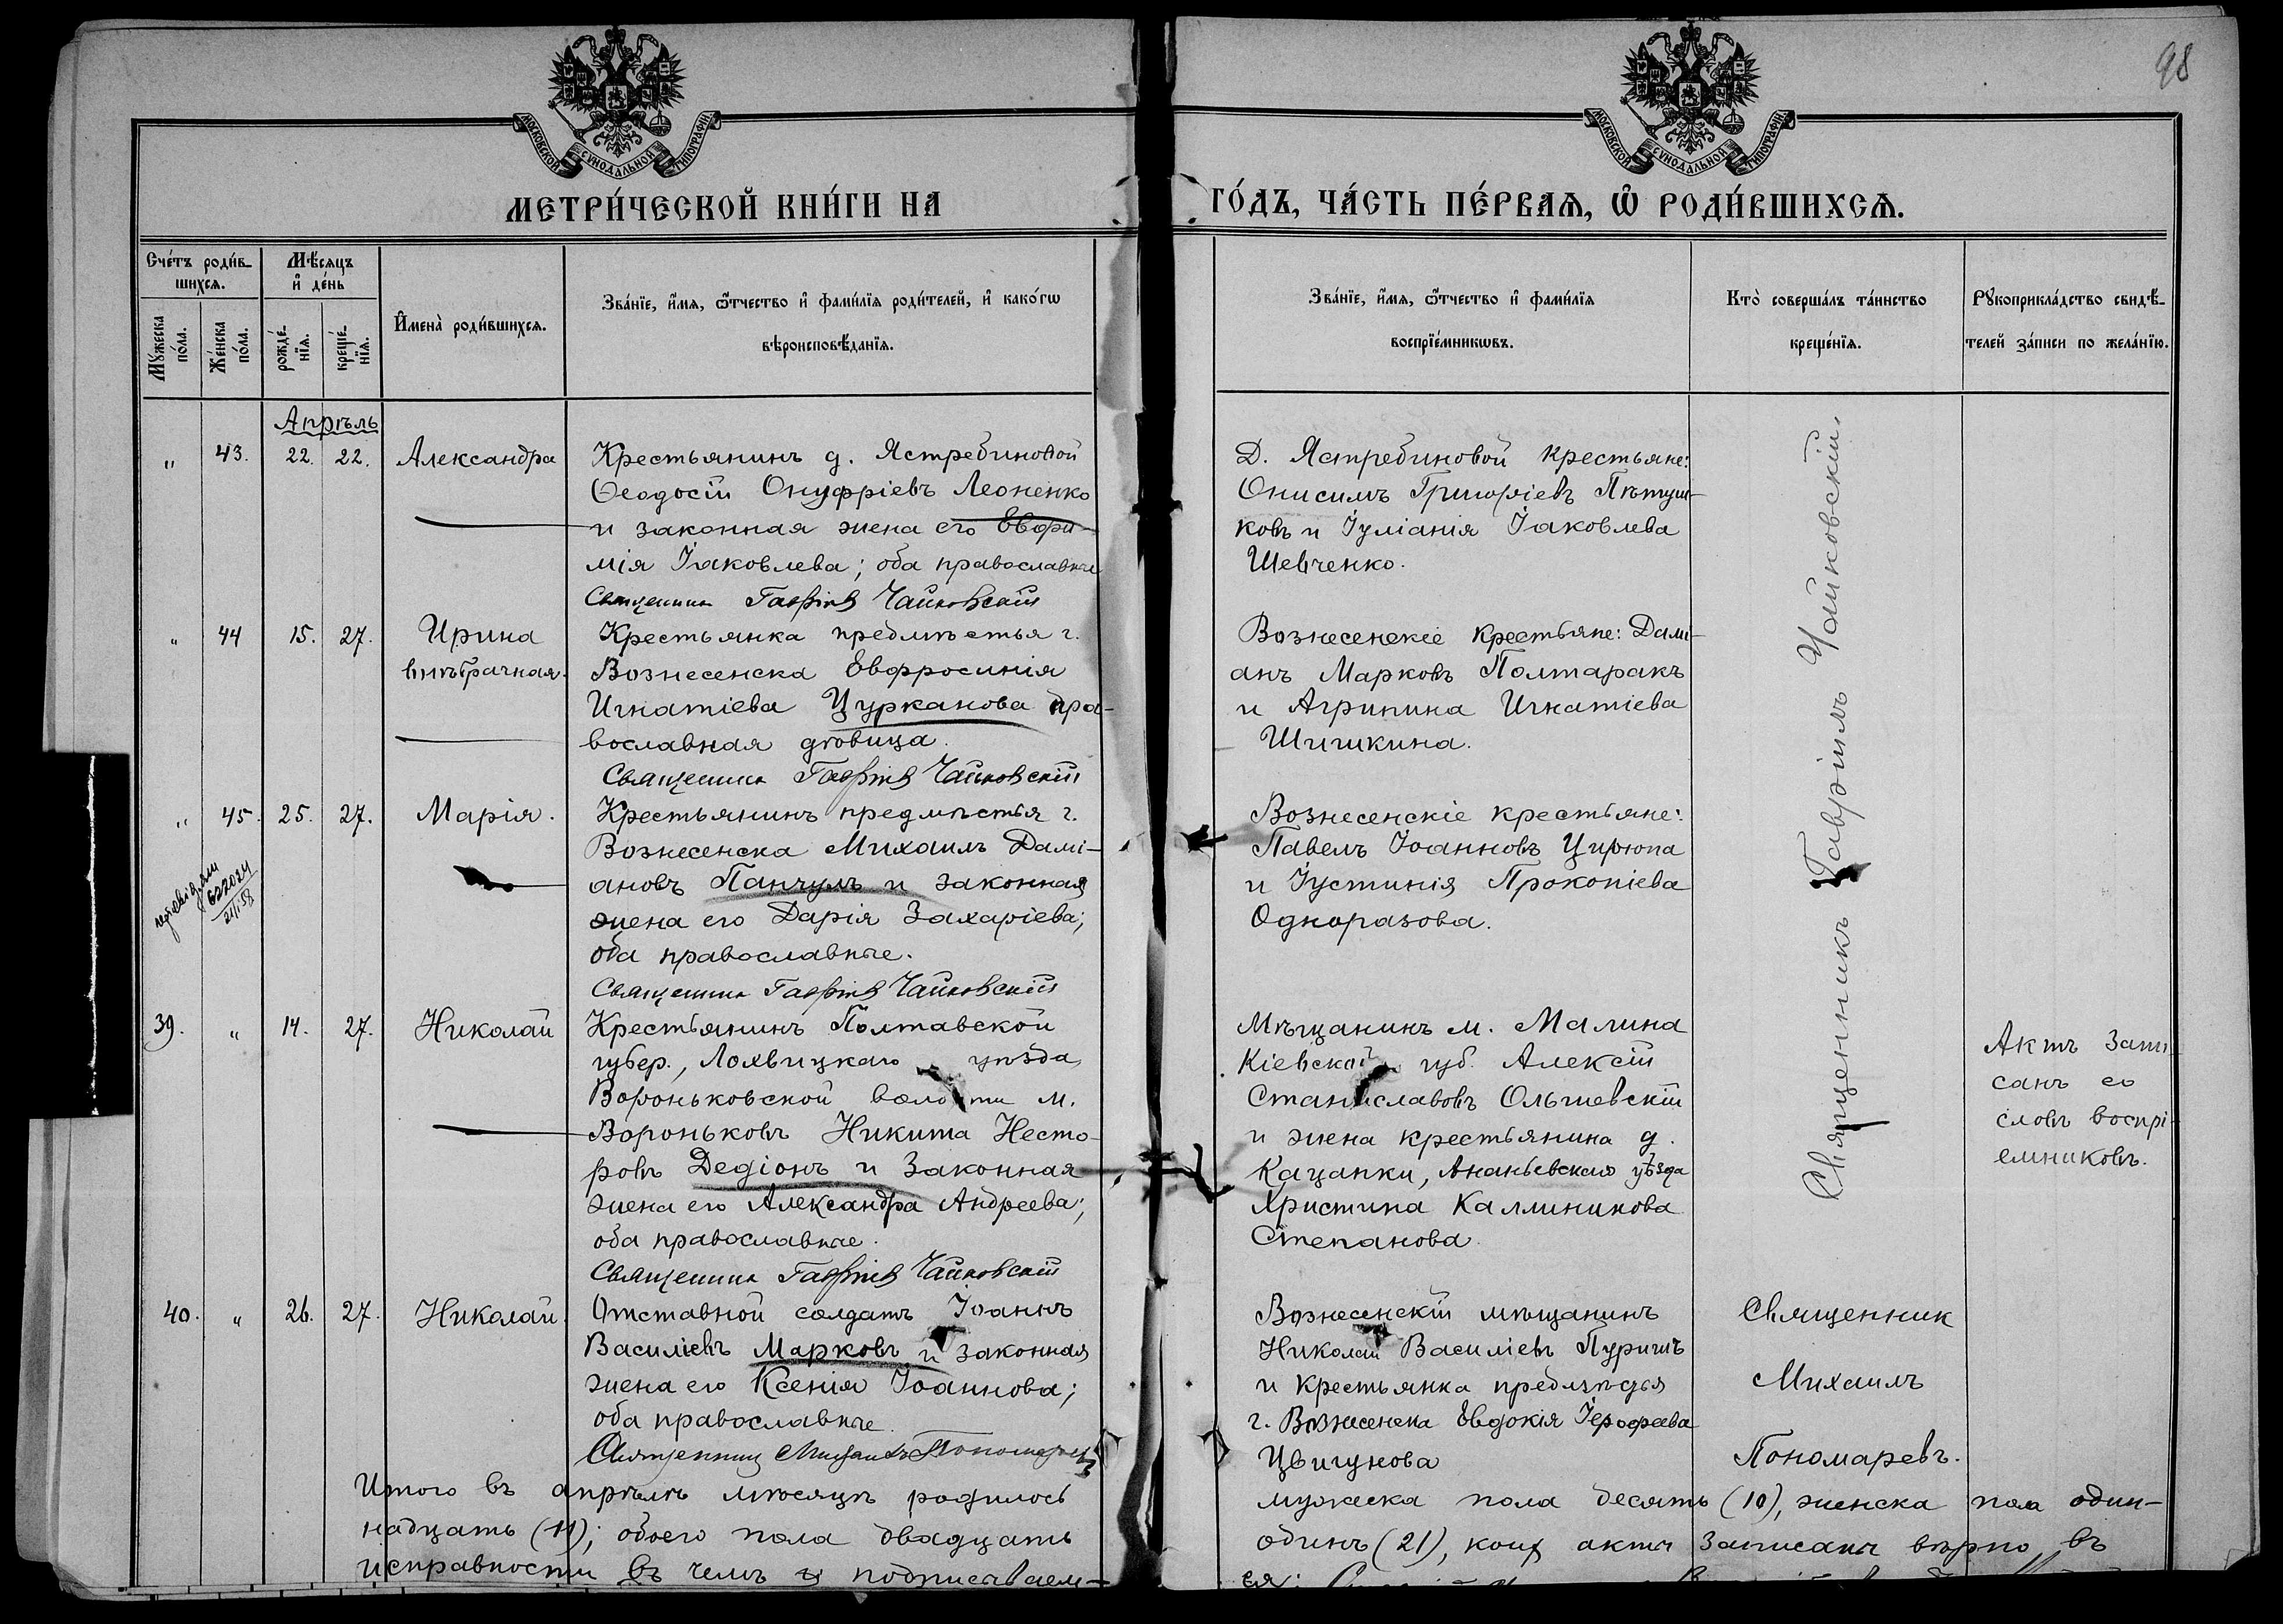 98
МОСКОВСКОЙ СѴНОДАЛЬНОЙ ТИПОГРАФІИ
МОСКОВСКОЙ СѴНОДАЛЬНОЙ ТИПОГРАФІИ
МЕТРИ́ЧЕСКОЙ КНИ́ГИ НА
ГО́ДЪ, ЧА́СТЬ ПЕ́РВАѦ, Ѡ РОДИ́ВШИХСѦ.
Сче́тъ роди́в-
шихсѧ.
Мꙋ́жеска
по́ла.
Же́нска
по́ла.
Мѣ́сѧцъ
и҆ де́нь
рожде́-
нїѧ.
креще́-
нїѧ.
И҆мена̀ роди́вшихсѧ.
Зва́нїе, и҆́мѧ, ѻ҆́тчество и҆ фами́лїѧ роди́телей, и҆ како́гѡ
вѣроисповѣ́данїѧ.
Зва́нїе, и҆́мѧ, ѻ҆́тчество и҆ фами́лїѧ
воспрїе́мникѡвъ.
Кто̀ соверша́лъ та́инство
креще́нїѧ.
Рꙋкоприкла́дство свидѣ́-
телей за́писи по жела́нїю.
Апрѣль
" 43. 22. 22. Александра
Крестьянинъ д. Ястребиновой
Ѳеодосій Онуфріевъ Леоненко
и законная жена его Евфи-
мія Іаковлева; оба православные
Священник Гавріил Чайковскій
Д. Ястребиновой крестьяне:
Онисимъ Григоріевъ Пѣтуш-
ковъ и Іуліанія Іаковлева
Шевченко.
" 44 15. 27. Ирина
внѣбрачная.
Крестьянка предмѣстья г.
Вознесенска Евфросинія
Игнатіева Цурканова пра-
вославная дѣвица.
Священник Гавріил Чайковскій
Вознесенскіе крестьяне: Дамі-
анъ Марковъ Полтаракъ
и Агрипина Игнатіева
Шишкина.
" 45. 25. 27. Марія.
Крестьянинъ предмѣстья г.
Вознесенска Михаилъ Дамі-
ановъ Панчулъ и законная
жена его Дарія Захаріева;
оба православные.
Священник Гавріил Чайковскій
Вознесенскіе крестьяне:
Павелъ Іоанновъ Цирюпа
и Іустинія Прокопіева
Одноразова.
39. " 14. 27. Николай
Крестьянинъ Полтавской
губер., Лохвицкаго уѣзда
Вороньковской волости м.
Вороньковъ Никита Несто-
ровъ Дедіонъ и законная
жена его Александра Андреева;
оба православные.
Священник Гавріил Чайковскій
Мѣщанинъ м. Малина
Кіевской губ. Алексій
Станиславовъ Ольшевскій
и жена крестьянина д.
Кацапки, Ананьевскаго уѣзда
Христина Каллиникова
Степанова.
Священникъ Гавріилъ Чайковскій.
Актъ запи-
санъ со
словъ воспрі-
емниковъ.
40. " 26. 27. Николай.
Отставной солдатъ Іоаннъ
Василіевъ Марковъ и законная
жена его Ксенія Іоаннова;
оба православные.
Священник Михаилъ Пономаревъ
Вознесенскій мѣщанинъ
Николай Василіевъ Пуришъ
и крестьянка предмѣстья
г. Вознесенска Евдокія Іерофеева
Цвигунова
Священник
Михаилъ
Пономаревъ.
Итого въ апрѣлѣ мѣсяцѣ родилось мужеска пола десять (10), женска пола один-
надцать (11); обоего пола двадцать одинъ (21), коихъ акты записаны вѣрно въ
исправности въ чемъ и подписываем-
ся: